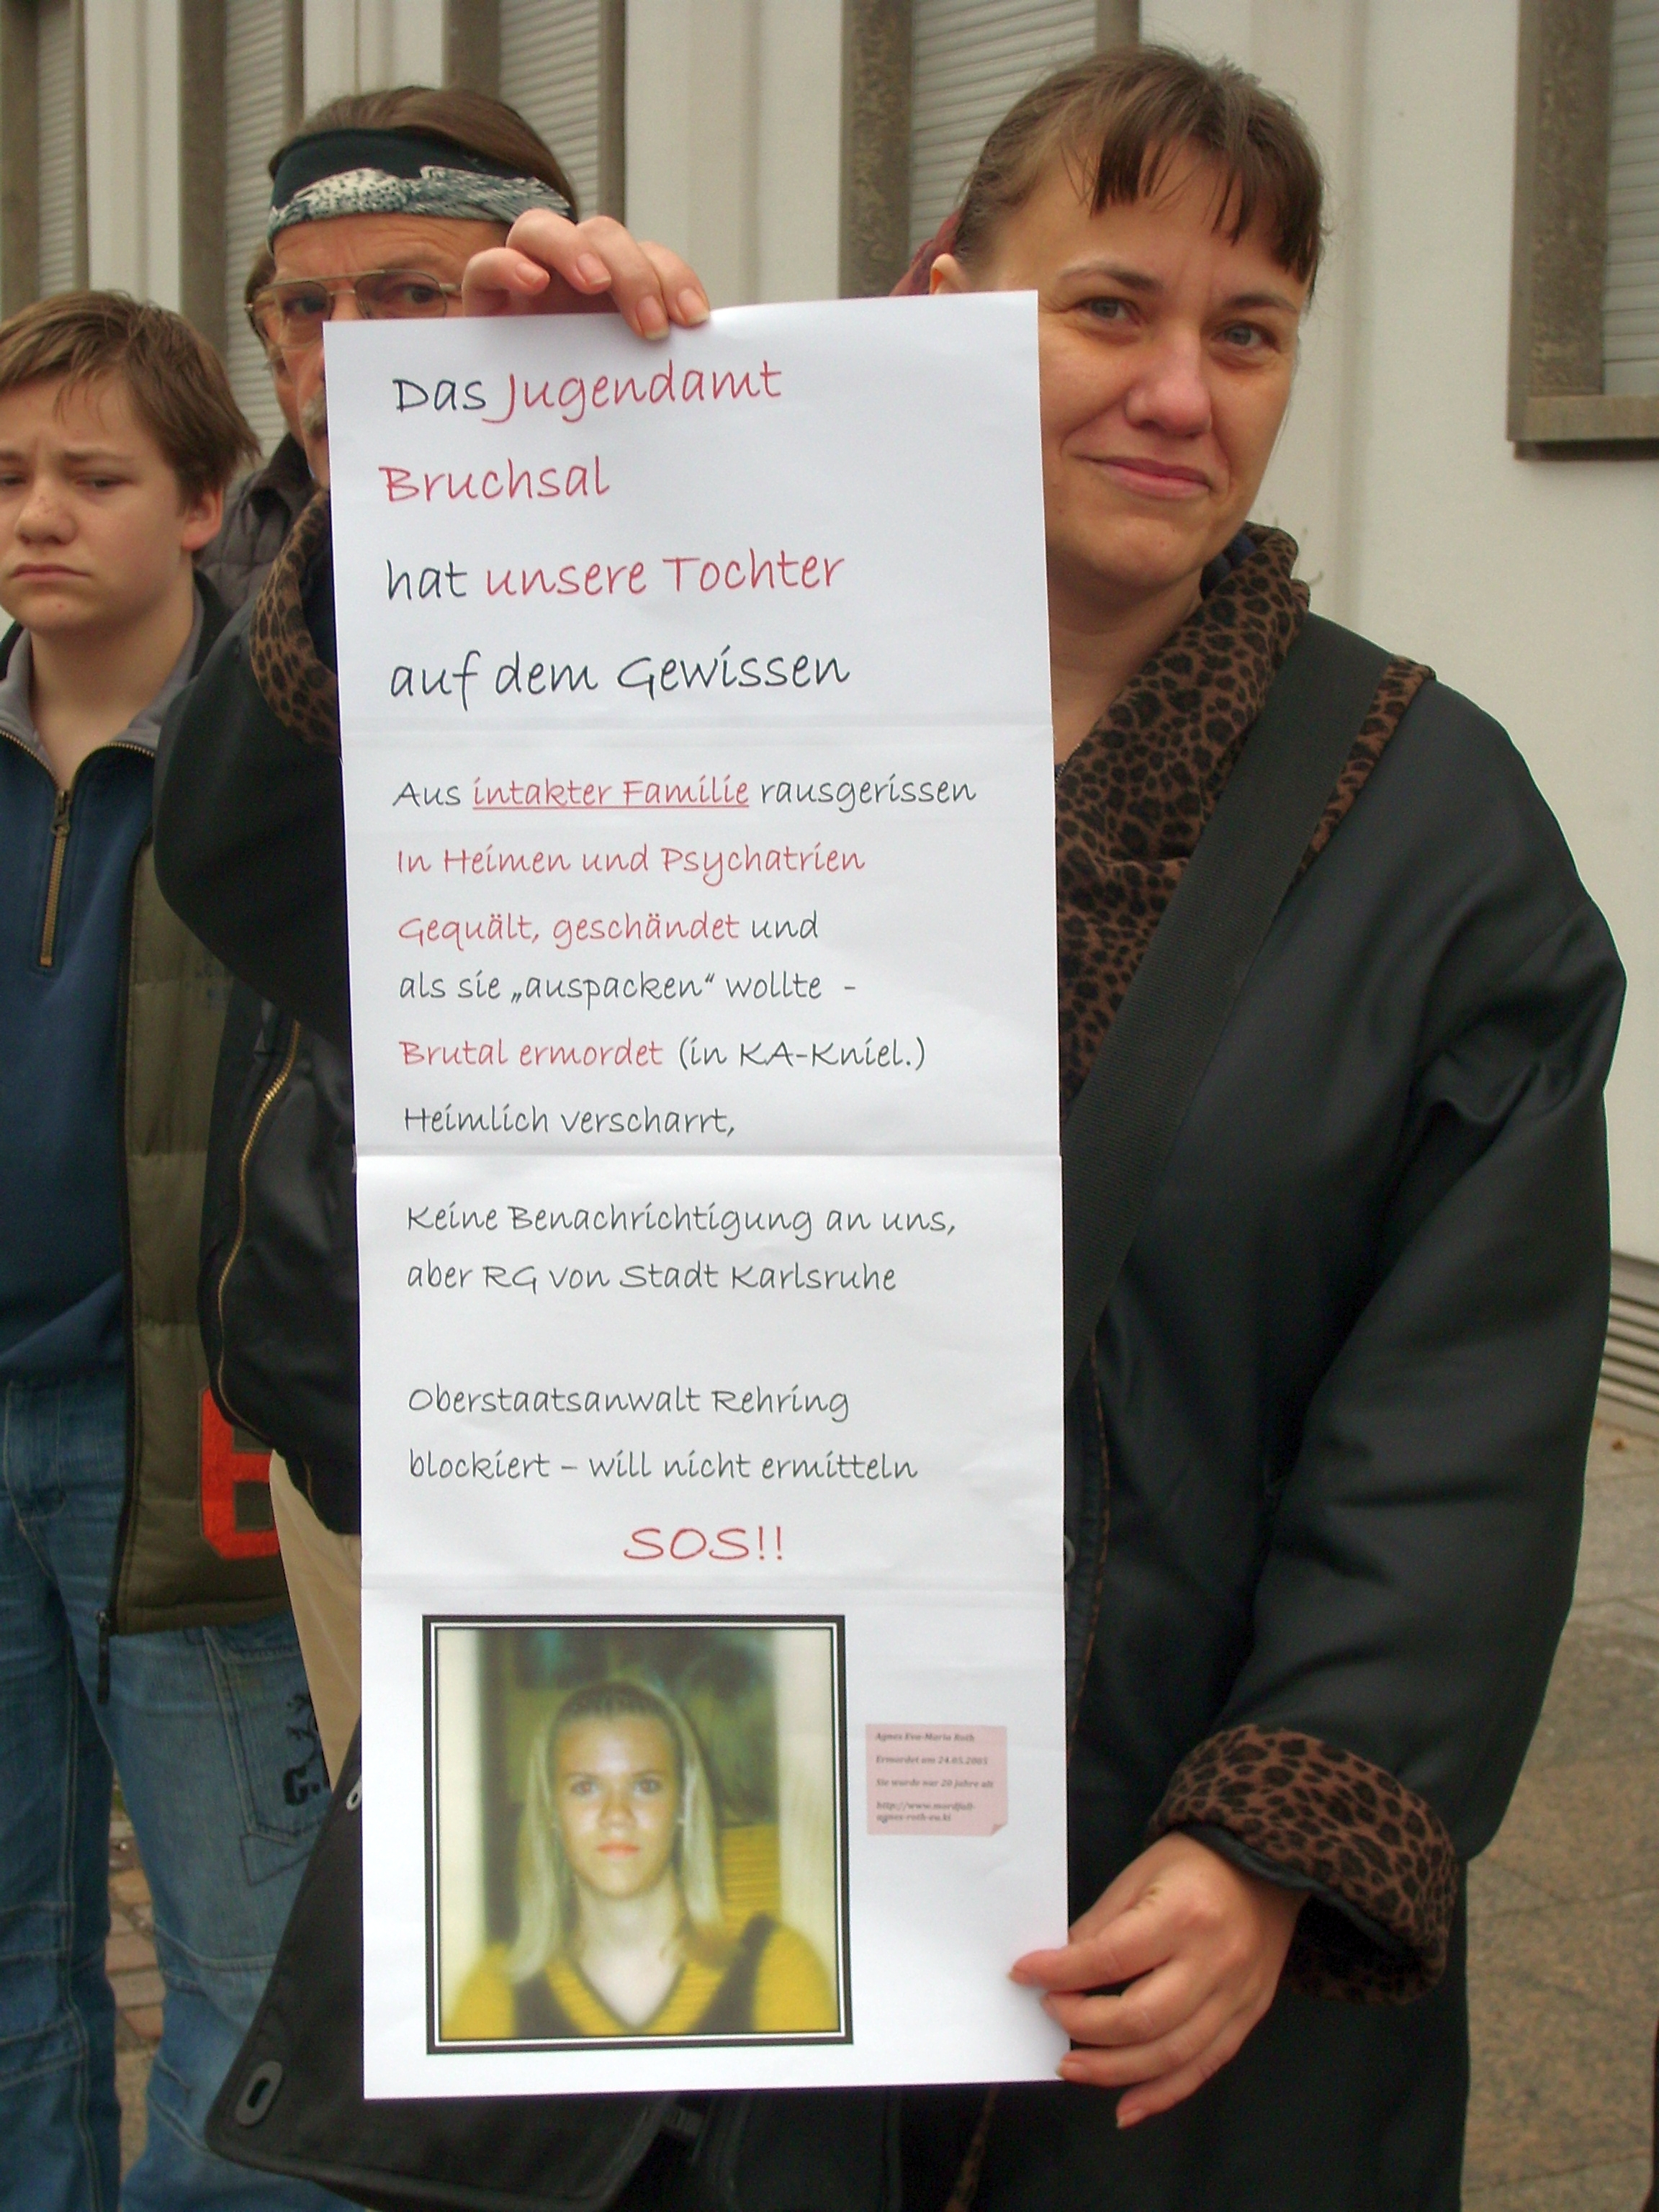 Das Jugendamt
Bruchsal
hat unsere Tochter
auf dem Gewissen
Aus intakter Familie rausgerissen
In Heimen und Psychatrien
Gequält, geschändet und
als sie „auspacken“ wollte -
Brutal ermordet (in KA-Kniel.)
Heimlich verscharrt,
Keine Benachrichtigung an uns,
aber RG von Stadt Karlsruhe
Oberstaatsanwalt Rehring
blockiert – will nicht ermitteln
SOS!!
Agnes Eva-Maria Roth
Ermordet am 24.05.2005
Sie wurde nur 20 Jahre alt
http://www.mordfall-